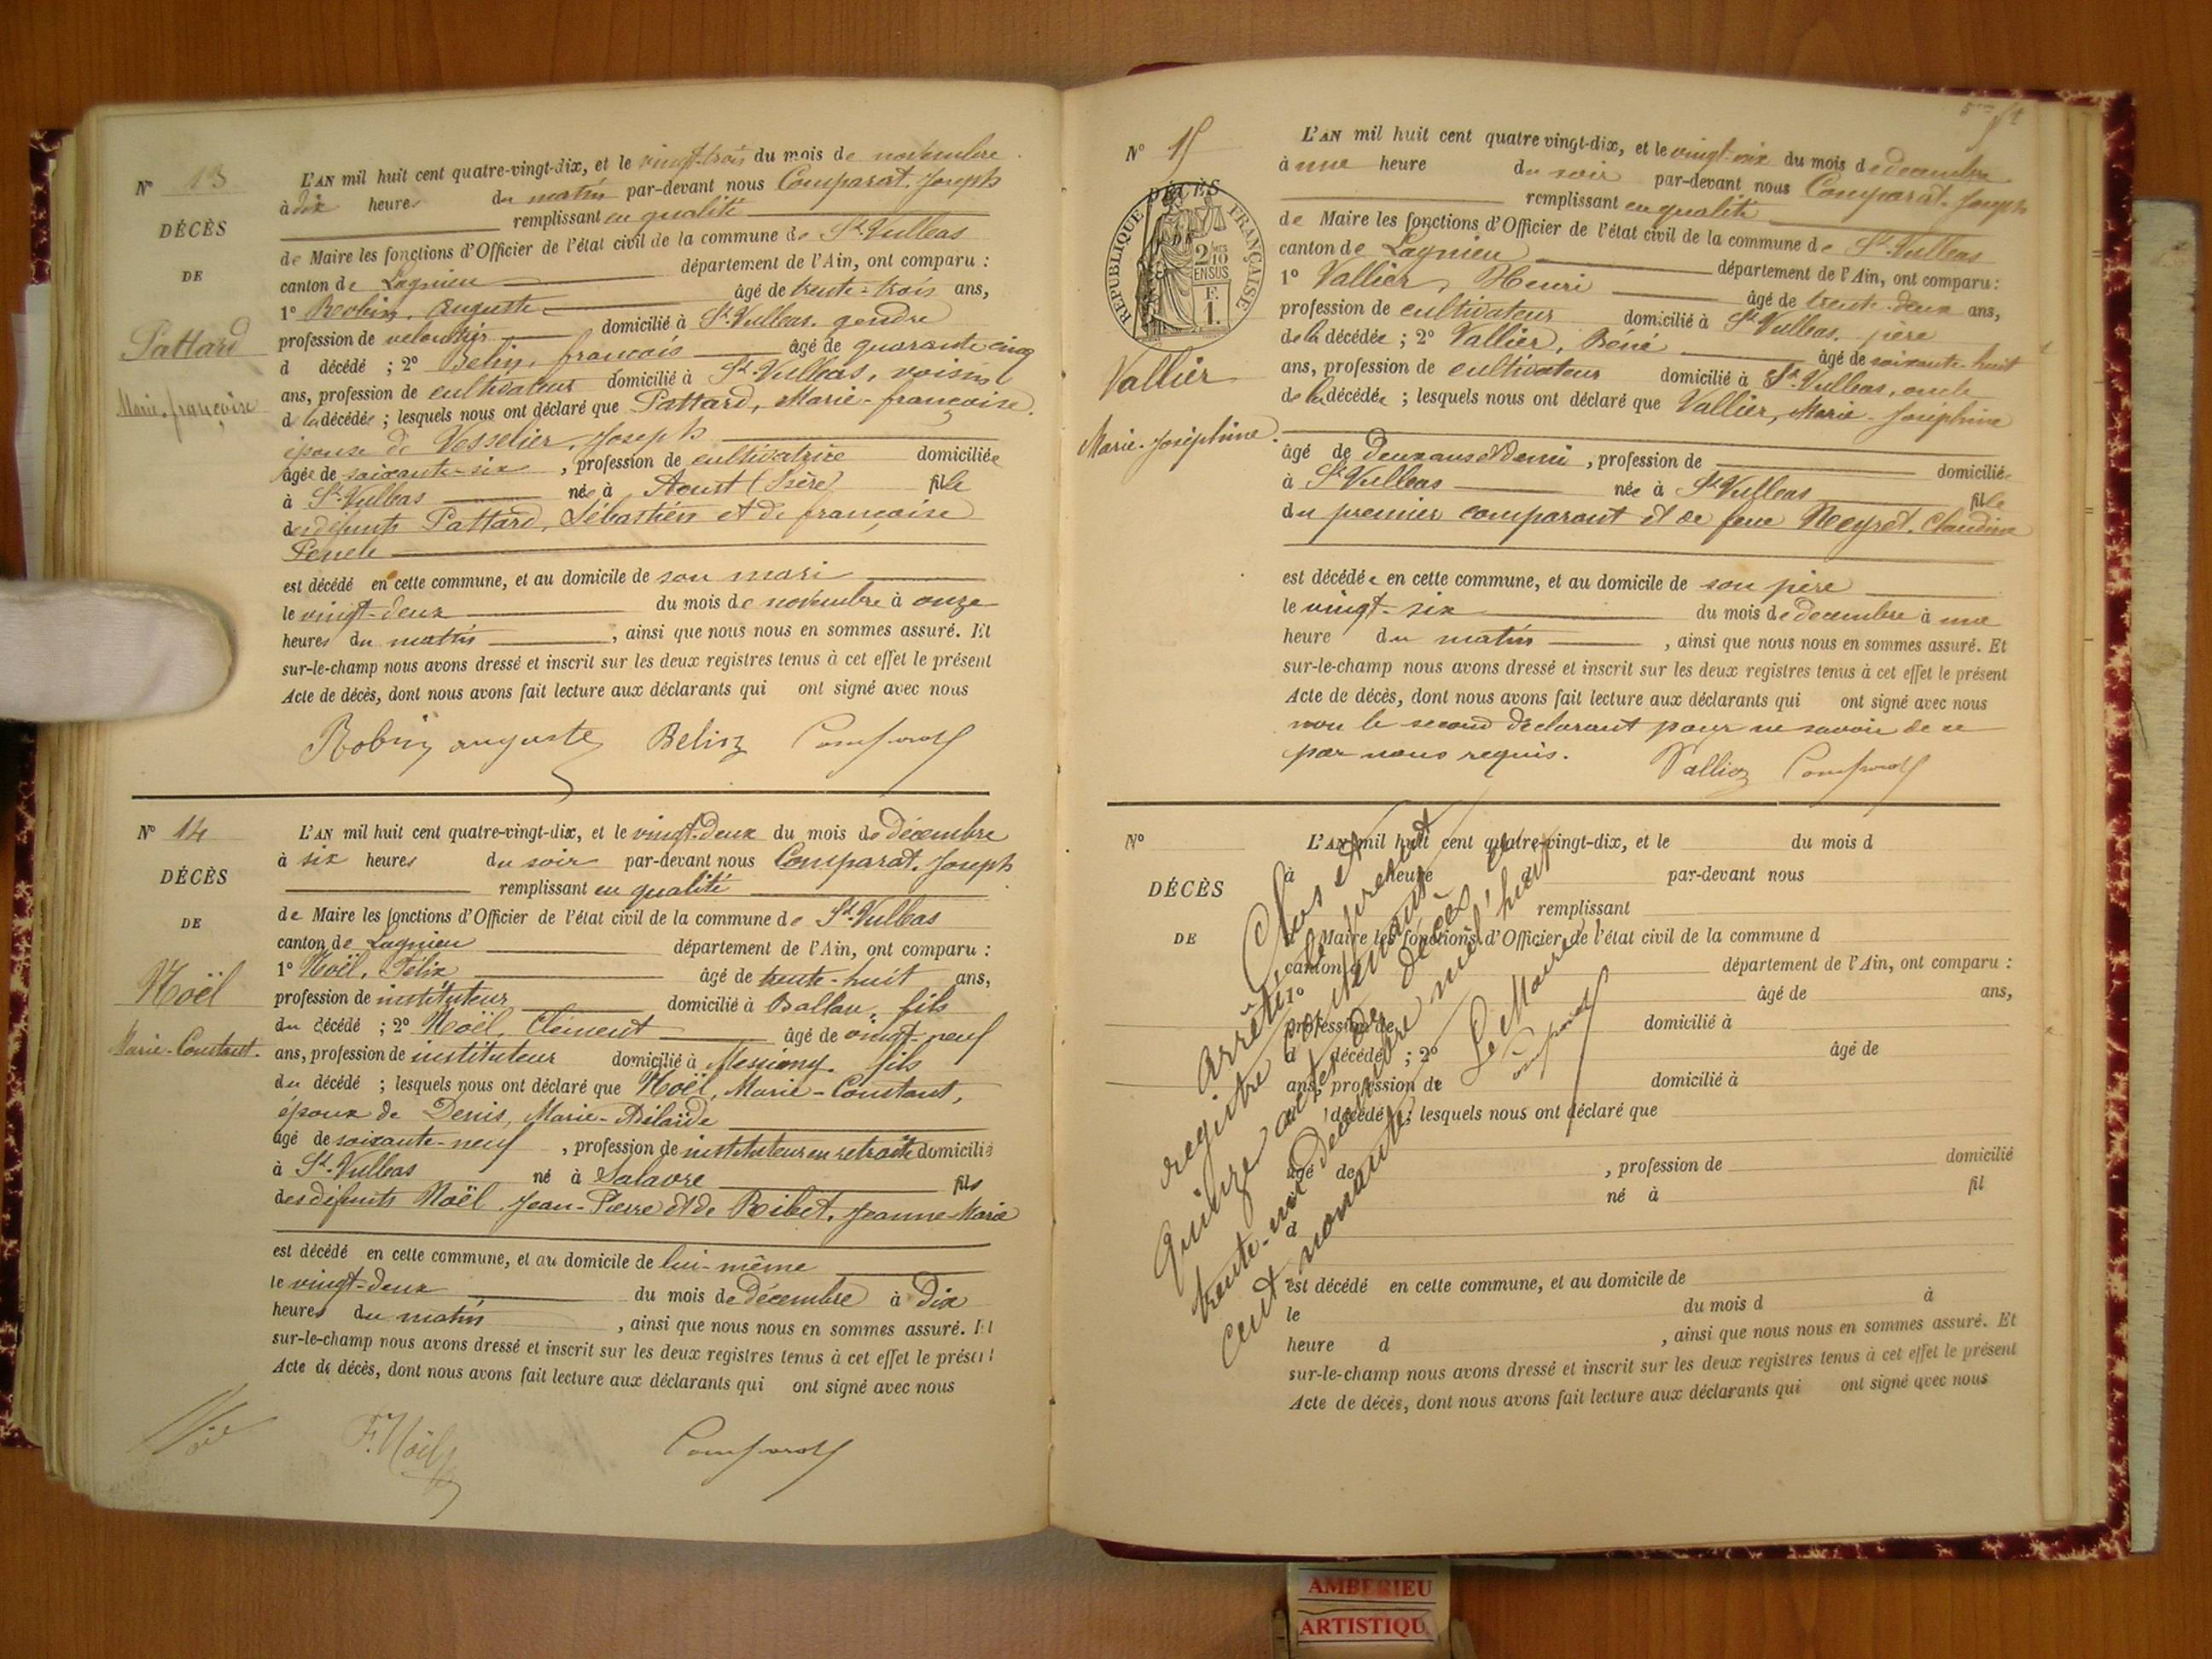 N° 13
DÉCÈS
DE
Pattard
Marie-françoise
L'AN mil huit cent quatre-vingt-dix, et le vingt-trois du mois de novembre
à dix heures du matin par-devant nous Comparat, Joseph
remplissant en qualité
de Maire les fonctions d'Officier de l'état civil de la commune de St Vulbas
canton de Lagnieu département de l'Ain, ont comparu :
1° Robin, Auguste âgé de trente-trois ans,
profession de veloutier domicilié à St Vulbas, gendre
d décédé ; 2° Belin, françois âgé de quarante cinq
ans, profession de cultivateur domicilié à St Vulbas, voisin
de la décédée ; lesquels nous ont déclaré que Pattard, Marie-françoise,
épouse de Vesselier, Joseph
âgée de soixante-six , profession de cultivatrice domiciliée
à St Vulbas née à Aoust (Isère) fille
des défunts Pattard, Sébastien et de françoise
est décédé en cette commune, et au domicile de son mari
le vingt-deux du mois de novembre à onze
heures du matin , ainsi que nous nous en sommes assuré. Et
sur-le-champ nous avons dressé et inscrit sur les deux registres tenus à cet effet le présent
Acte de décès, dont nous avons fait lecture aux déclarants qui ont signé avec nous
Robin auguste Belin Comparat
N° 14
DÉCÈS
DE
Noël
Marie-Constant.
L'AN mil huit cent quatre-vingt-dix, et le vingt-deux du mois de décembre
à six heures du soir par-devant nous Comparat, Joseph
remplissant en qualité
de Maire les fonctions d'Officier de l'état civil de la commune de St Vulbas
canton de Lagnieu département de l'Ain, ont comparu :
1° Noël, Félix âgé de trente-huit ans,
profession de instituteur domicilié à Ballan, fils
du décédé ; 2° Noël, Clément âgé de vingt-neuf
ans, profession de instituteur domicilié à Messimy fils
du décédé ; lesquels nous ont déclaré que Noël, Marie-Constant,
époux de Denis, Marie-Adélaïde
âgé de soixante-neuf , profession de instituteur en retraite domicilié
à St Vulbas né à Salavre fils
des défunts Noël Jean-Pierre et de Ribet, Jeanne-Marie
est décédé en cette commune, et au domicile de lui-même
le vingt-deux du mois de décembre à dix
heures du matin , ainsi que nous nous en sommes assuré. Et
sur-le-champ nous avons dressé et inscrit sur les deux registres tenus à cet effet le présent
Acte de décès, dont nous avons fait lecture aux déclarants qui ont signé avec nous
F. Noël Comparat
N° 15
RÉPUBLIQUE FRANÇAISE
DÉCÈS
2/10
EN SUS
F.
1.
Vallier
Marie-Joséphine.
L'AN mil huit cent quatre vingt-dix, et le vingt-six du mois de decembre
à une heure du soir par-devant nous Comparat, Joseph
remplissant en qualité
de Maire les fonctions d'Officier de l'état civil de la commune de St Vulbas
canton de Lagnieu département de l'Ain, ont comparu :
1° Vallier, Henri âgé de trente-deux ans,
profession de cultivateur domicilié à St Vulbas, père
de la décédée ; 2° Vallier, Réné âgé de soixante-huit
ans, profession de cultivateur domicilié à St Vulbas, oncle
de la décédée ; lesquels nous ont déclaré que Vallier, Marie-Joséphine
âgé de deux ans et demi , profession de domiciliée
à St Vulbas née à St Vulbas fille
du premier comparant et de feue Neyret, Claudine
est décédée en cette commune, et au domicile de son père
le vingt-six du mois de decembre à une
heure du matin , ainsi que nous nous en sommes assuré. Et
sur-le-champ nous avons dressé et inscrit sur les deux registres tenus à cet effet le présent
Acte de décès, dont nous avons fait lecture aux déclarants qui ont signé avec nous
non le second déclarant pour ne savoir de ce
par nous requis. Vallier Comparat
N°
DÉCÈS
DE
L'AN mil huit cent quatre-vingt-dix, et le du mois d
à heure d par-devant nous
remplissant
d Maire les fonctions d'Officier de l'état civil de la commune d
canton d département de l'Ain, ont comparu :
1° âgé de ans,
profession de domicilié à
d décédé ; 2° âgé de
ans, profession de domicilié à
d décédé ; lesquels nous ont déclaré que
âgé de , profession de domicilié
à né à fil
d
est décédé en cette commune, et au domicile de
le du mois d à
heure d , ainsi que nous nous en sommes assuré. Et
sur-le-champ nous avons dressé et inscrit sur les deux registres tenus à cet effet le présent
Acte de décès, dont nous avons fait lecture aux déclarants qui ont signé avec nous
Clos et
arrêté le présent
registre contenant
quinze actes de décès ce
trente-un décembre mil huit
cent nonante
Le Maire
Comparat
AMBERIEU
ARTISTIQU